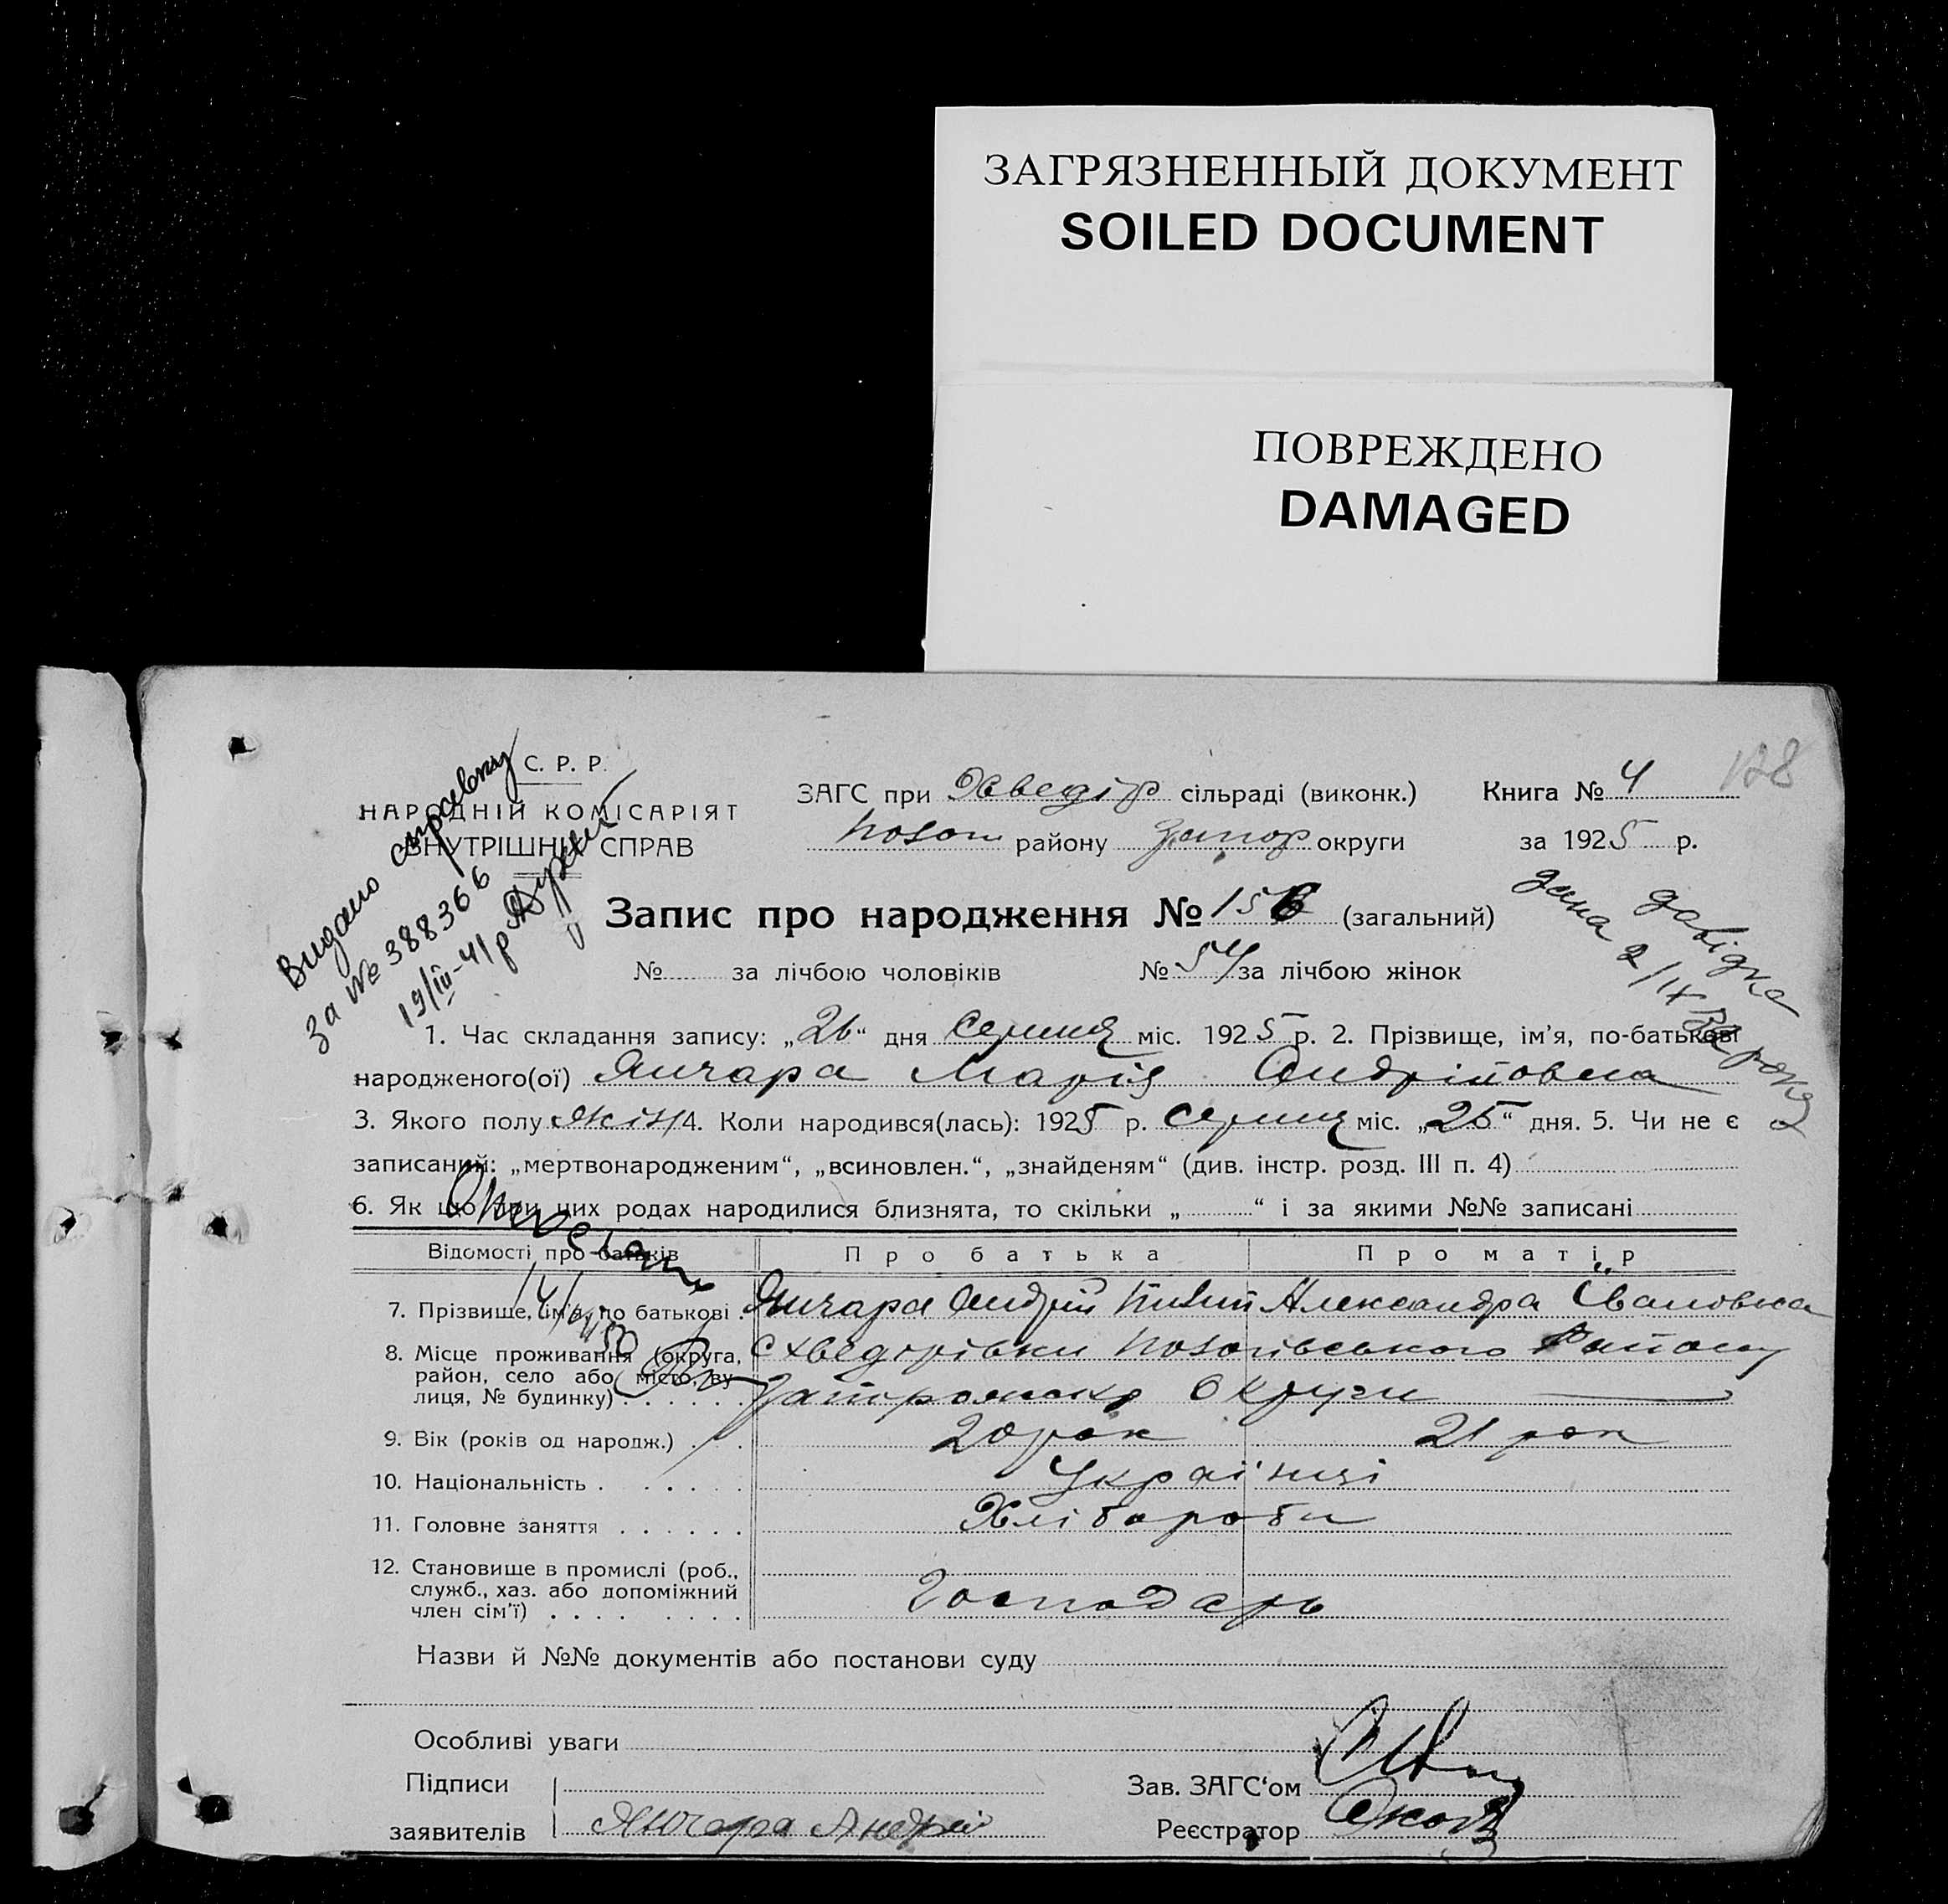 ЗАГРЯЗНЕННЫЙ ДОКУМЕНТ
SOILED DOCUMENT
ПОВРЕЖДЕНО
DAMAGED
128
С. Р. Р.
НАРОДНІЙ КОМІСАРІЯТ
ВНУТРІШНІХ СПРАВ
Видано справку
За № 388366
19/III-41р
ЗАГС при Хведір сільраді (виконк.)
району Запор округи
Книга № 4
за 1925 р.
Запис про народження № 156 (загальний)
№ за лічбою чоловіків № 54 за лічбою жінок
довідка
дана 2/IX року
1. Час складання запису: „26“ дня серпня міс. 1925 р. 2. Прізвище, ім’я, по-батькові
народженого(ої) Янчара Марія Андріївна
3. Якого полу жін 4. Коли народився(лась): 1925 р. серпня міс. „25“ дня. 5. Чи не є
записаний: „мертвонародженим“, „всиновлен.“, „знайденям“ (див. інстр. розд. III п. 4)
6. Як що при цих родах народилися близнята, то скільки „ “ і за якими №№ записані
Відомості про батьків Про батька Про матір
7. Прізвище, ім’я, по батькові Янчара Андрій Александра Івановна
8. Місце проживання (округа,
район, село або місто, ву-
лиця, № будинку)
с Хведорівки району
Запорожско Округи
9. Вік (років од народж.) 20 рок 21 рок
10. Національність Украї'нці
11. Головне заняття Хлібороби
12. Становище в промислі (роб.,
служб., хаз. або допоміжний
член сім’ї) Господарь
Назви й №№ документів або постанови суду
Особливі уваги
Підписи
заявителів Янчара Андрій
Зав. ЗАГС‘ом
Реєстратор